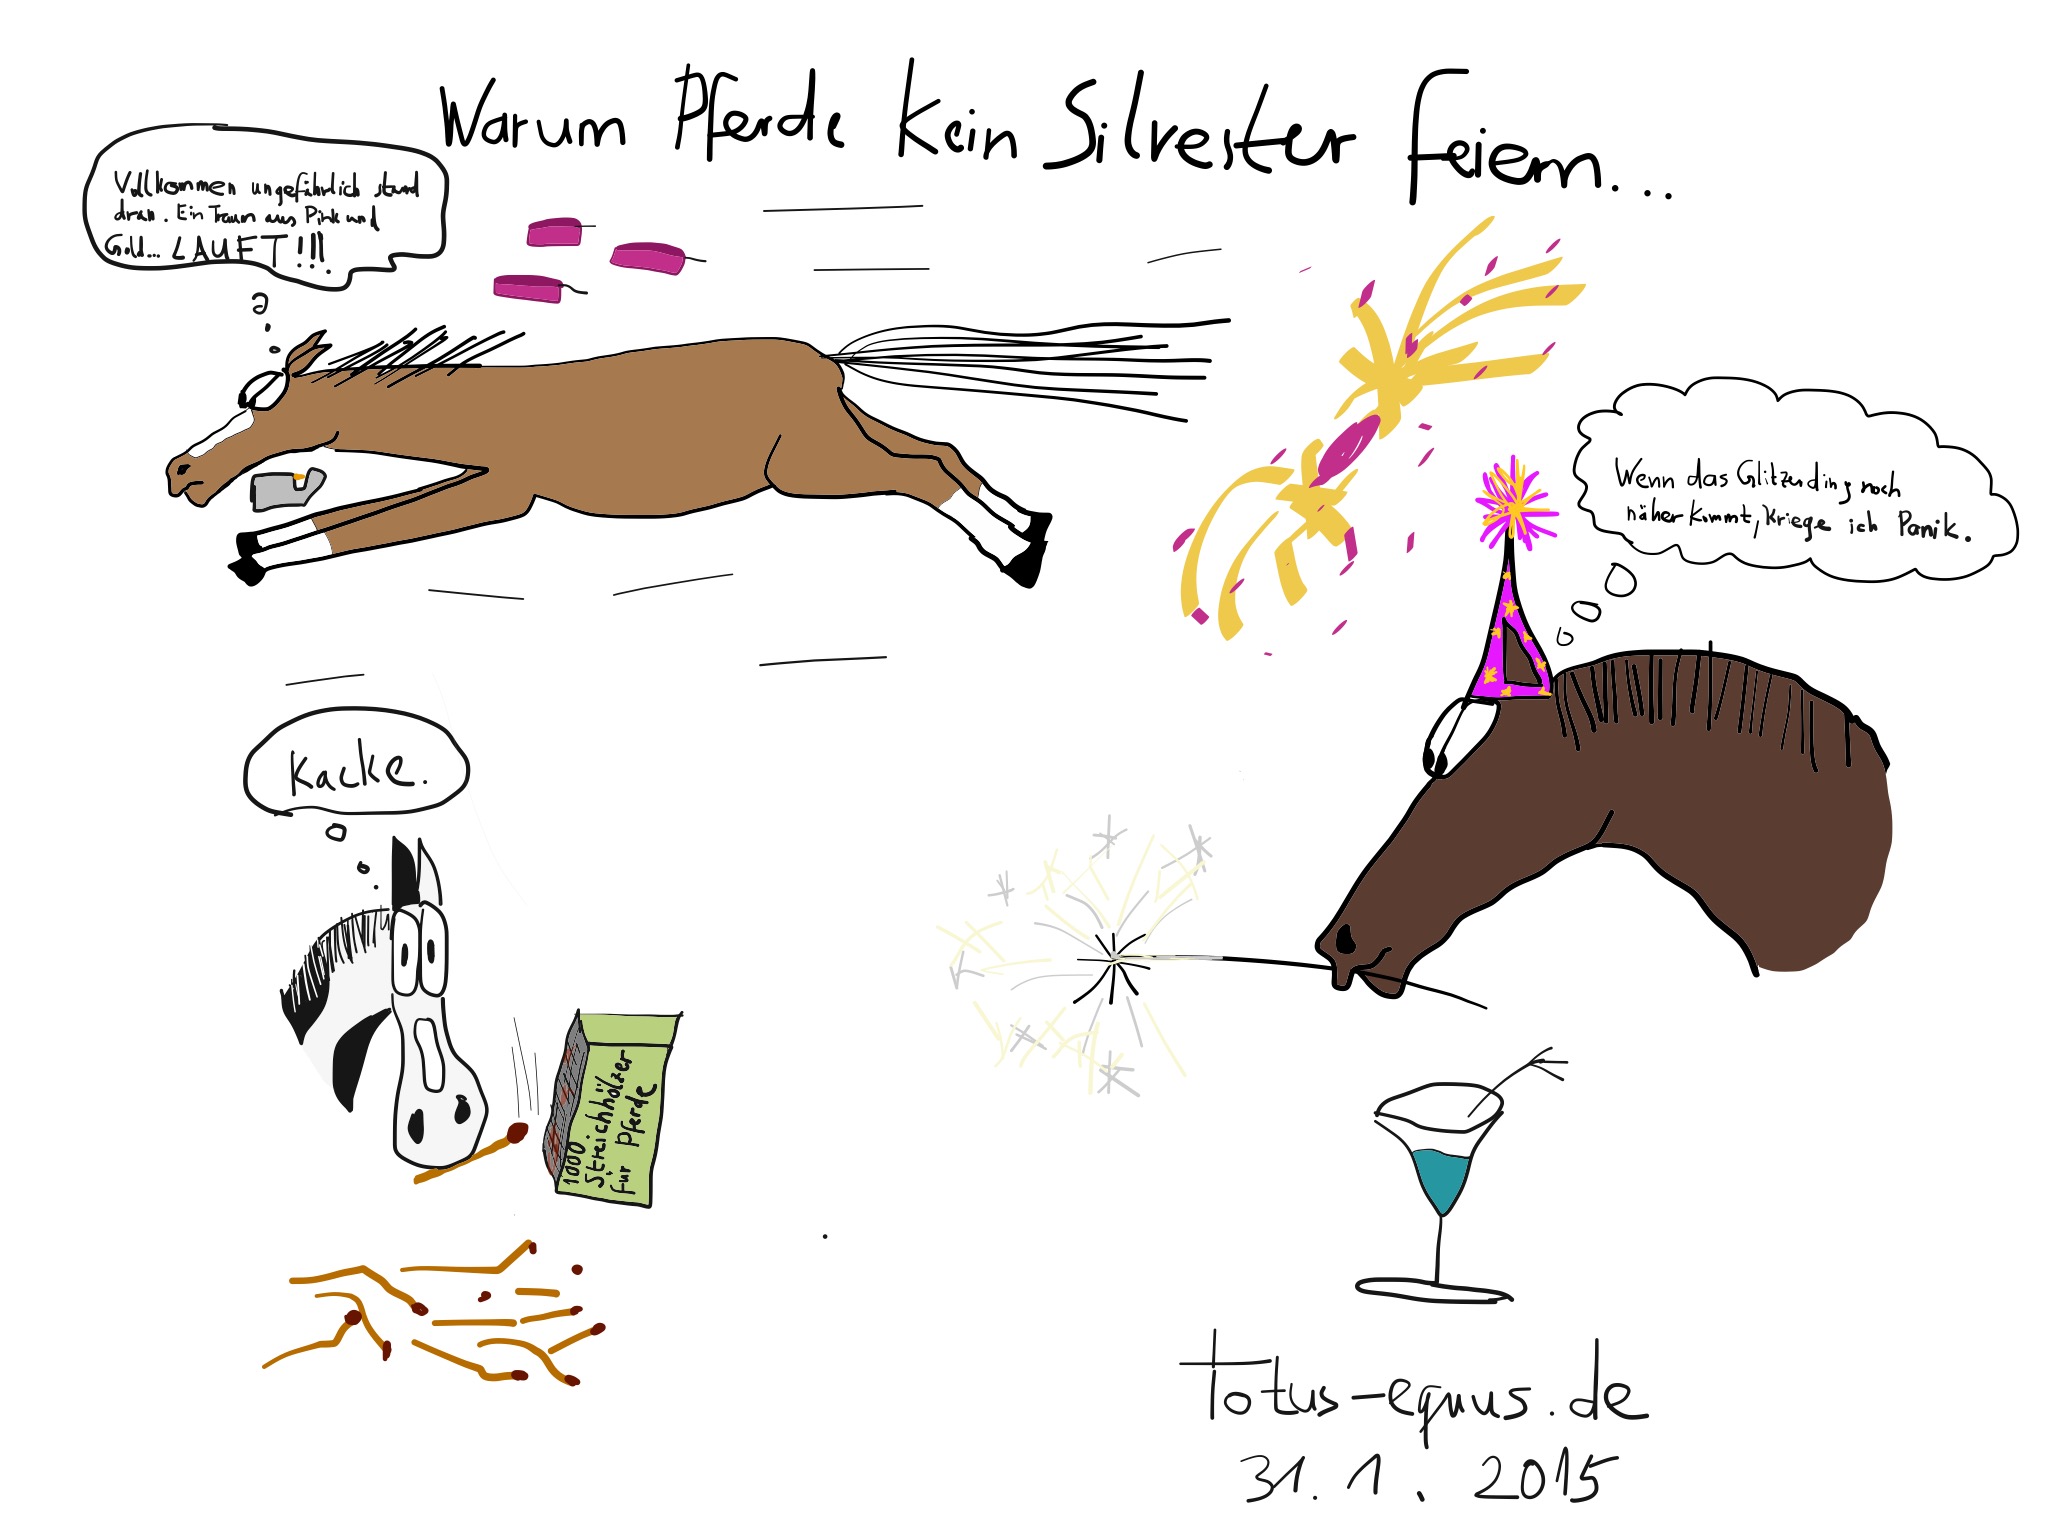 Warum Pferde kein Silvester feiern...
Vollkommen ungefährlich stand
dran. Ein Traum aus Pink und
Gold... LAUFT!!!
Wenn das Glitzerding noch
näher kommt, kriege ich Panik.
Kacke.
1000
Streichhölzer
für Pferde
totus-equus.de
31.1.2015